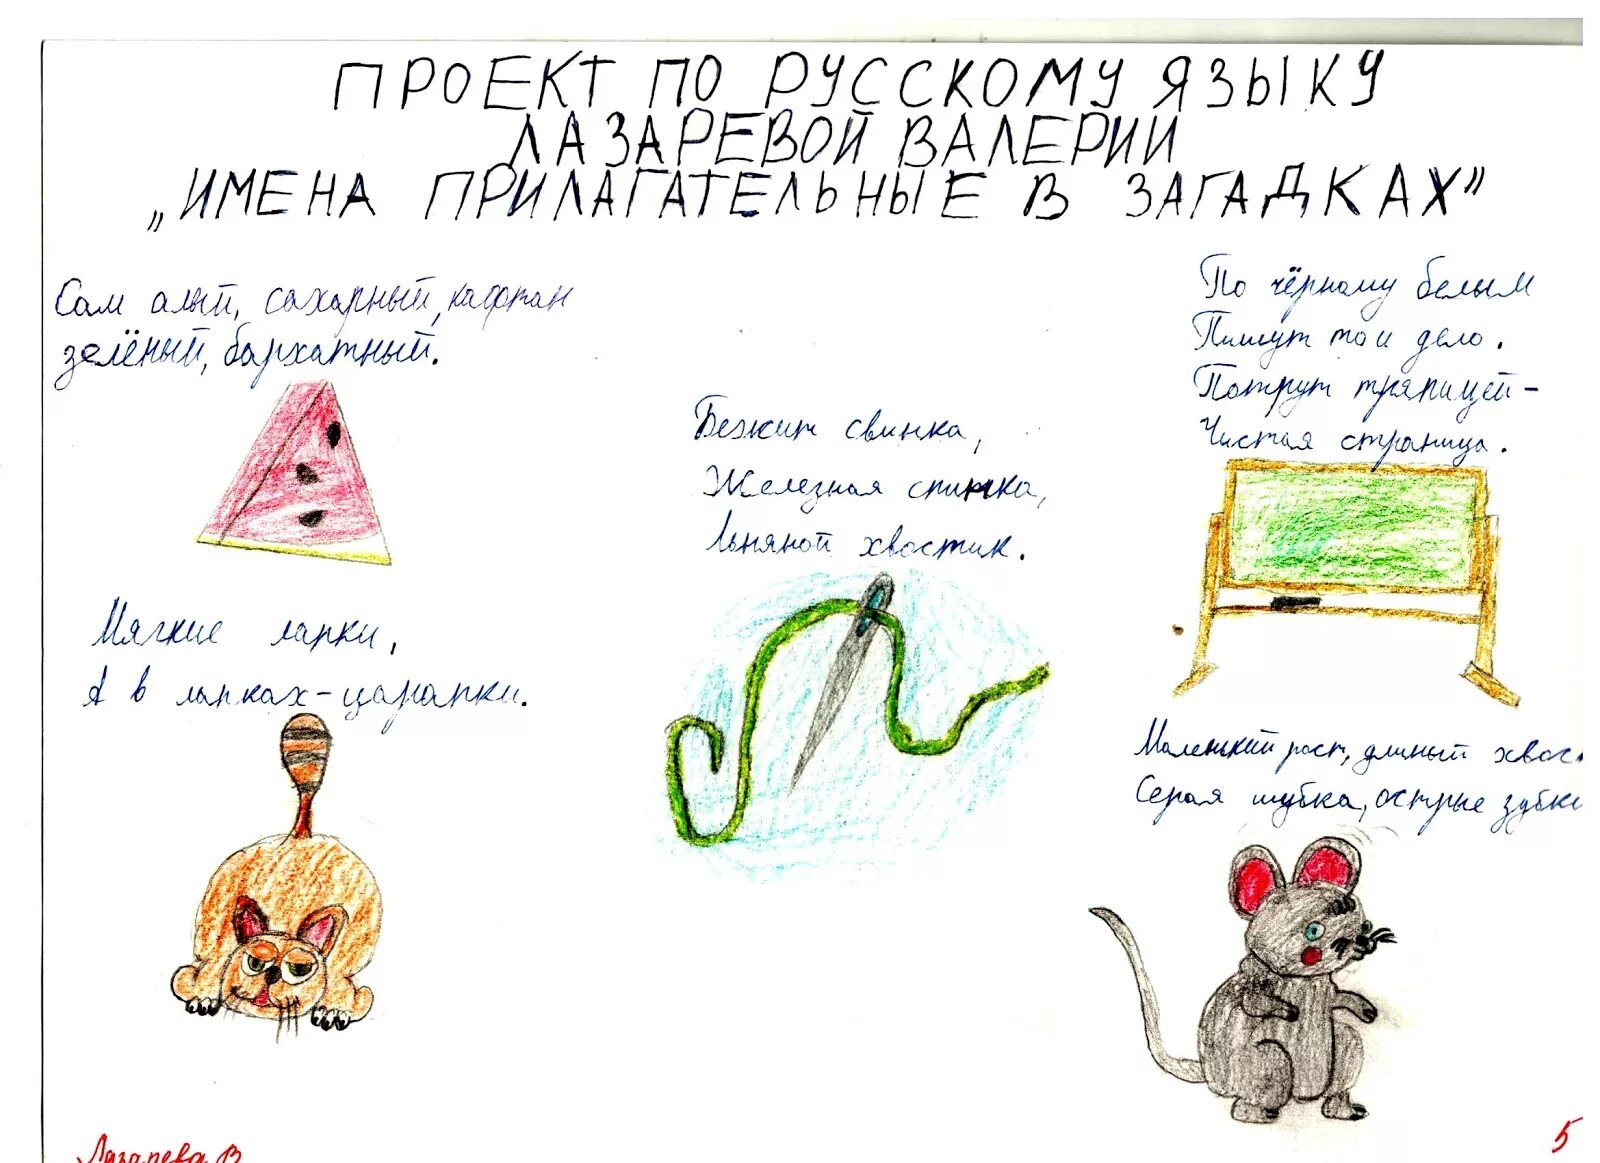 ПРОЕКТ ПО РУССКОМУ ЯЗЫКУ
ЛАЗАРЕВОЙ ВАЛЕРИИ
„ИМЕНА ПРИЛАГАТЕЛЬНЫЕ В ЗАГАДКАХ"
Сам алый, сахарный, кафтан
зелёный, бархатный.
Мягкие лапки,
А в лапках - царапки.
Бежит свинка,
Железная спинка,
Льняной хвостик.
По чёрному белым
Пишут то и дело.
Потрут тряпицей -
Чистая страница.
Маленький рост, длинный хвос
Серая шубка, острые зубки
Лазарева В
5